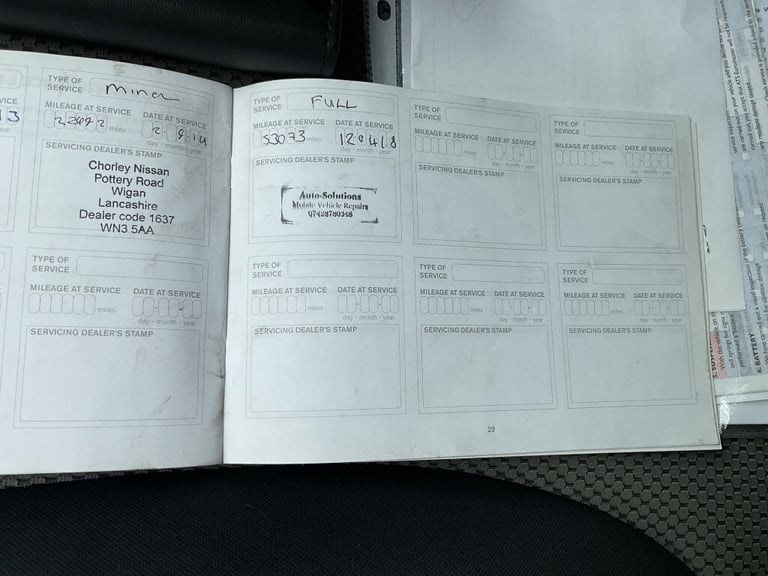 TYPE OF
SERVICE
MILEAGE AT SERVICE
miles
DATE AT SERVICE
day - month - year
SERVICING DEALER'S STAMP
Chorley Nissan
Pottery Road
Wigan
Lancashire
Dealer code 1637
WN3 5AA
TYPE OF
SERVICE
MILEAGE AT SERVICE
miles
DATE AT SERVICE
day - month - year
SERVICING DEALER'S STAMP
TYPE OF
SERVICE
FULL
MILEAGE AT SERVICE
53073 miles
DATE AT SERVICE
120418
day - month - year
SERVICING DEALER'S STAMP
Auto-Solutions
Mobile Vehicle Repairs
TYPE OF
SERVICE
MILEAGE AT SERVICE
miles
DATE AT SERVICE
day - month - year
SERVICING DEALER'S STAMP
TYPE OF
SERVICE
MILEAGE AT SERVICE
miles
DATE AT SERVICE
day - month - year
SERVICING DEALER'S STAMP
TYPE OF
SERVICE
MILEAGE AT SERVICE
miles
DATE AT SERVICE
day - month - year
SERVICING DEALER'S STAMP
TYPE OF
SERVICE
MILEAGE AT SERVICE
miles
DATE AT SERVICE
day - month - year
SERVICING DEALER'S STAMP
TYPE OF
SERVICE
MILEAGE AT SERVICE
miles
DATE AT SERVICE
day - month - year
SERVICING DEALER'S STAMP
23
6. BATTERY